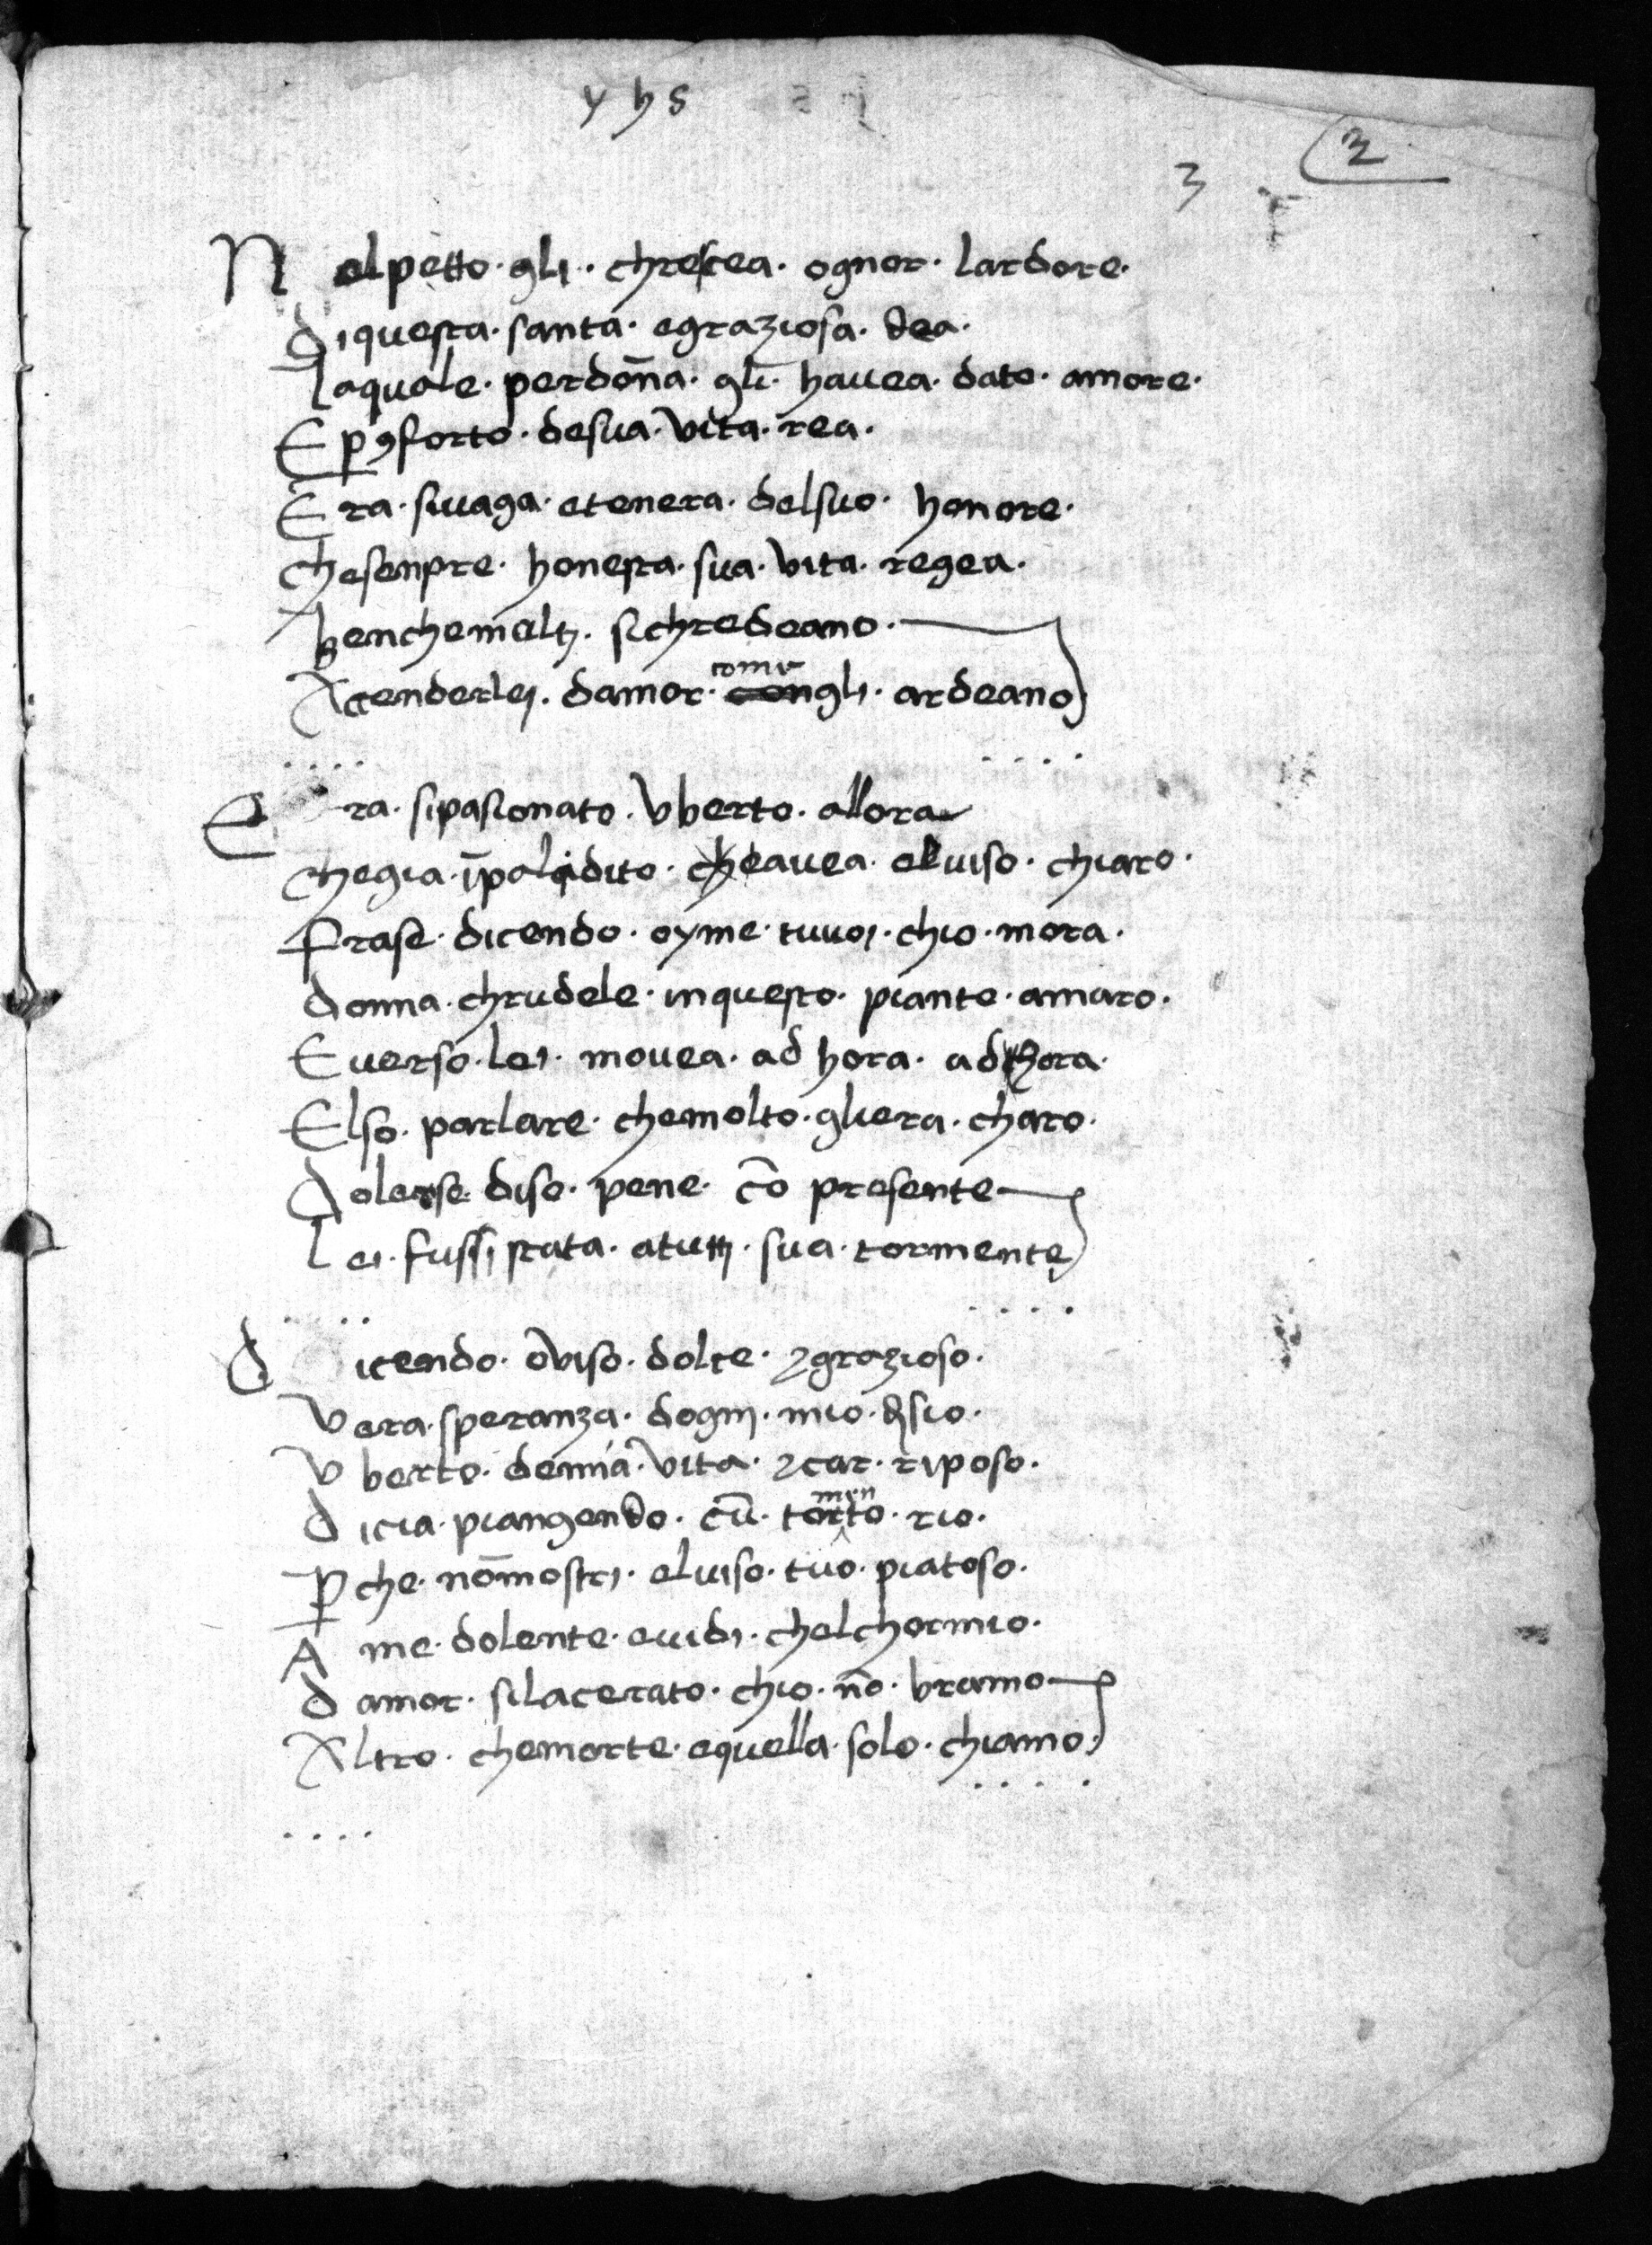 yhs
3 2
N elpetto · gli · chrescea · ognor · lardore ·
diquesta · santa · egraziosa · dea ·
laquale · perdōna · gli · havea · dato · amore ·
E ꝑ ꝯforto · desua · vita · rea ·
Era · sivaga · etenera · delsuo · honore ·
chesenpre · honesta · sua · vita · regea ·
benchemoltj · sichredeano ·
Accenderlej · damor · come gli · ardeano
. . . . . . . .
E ra · sipasionato · vberto · allora
chegia · īpalidito · heavea · elviso · chiaro ·
frase · dicendo · oyme · tuvoi · chio · mora ·
donna · chrudele · inquesto · piante · amaro ·
E verso · lei · movea · ad hora · ad hora ·
Elso · parlare · chemolto · gliera · charo ·
dolerse · diso · pene · cō presente
Lei · fussi stata · atuttj · sua · tormente
. . . . . . . .
d icendo · oviso · dolce · ⁊grazioso ·
vera · speranza · dognj · mio · dsio ·
v berto · demia · vita · ⁊car · riposo ·
d icia · piangendo · cū · tormento · rio ·
ꝑ che · nōmostri · elviso · tuo · piatoso ·
A me · dolente · evidi · chelchormio ·
d amor · silacerato · chio · nō · bramo
Altro · chemorte · equella · solo · chiamo ·
. . . . . . . .